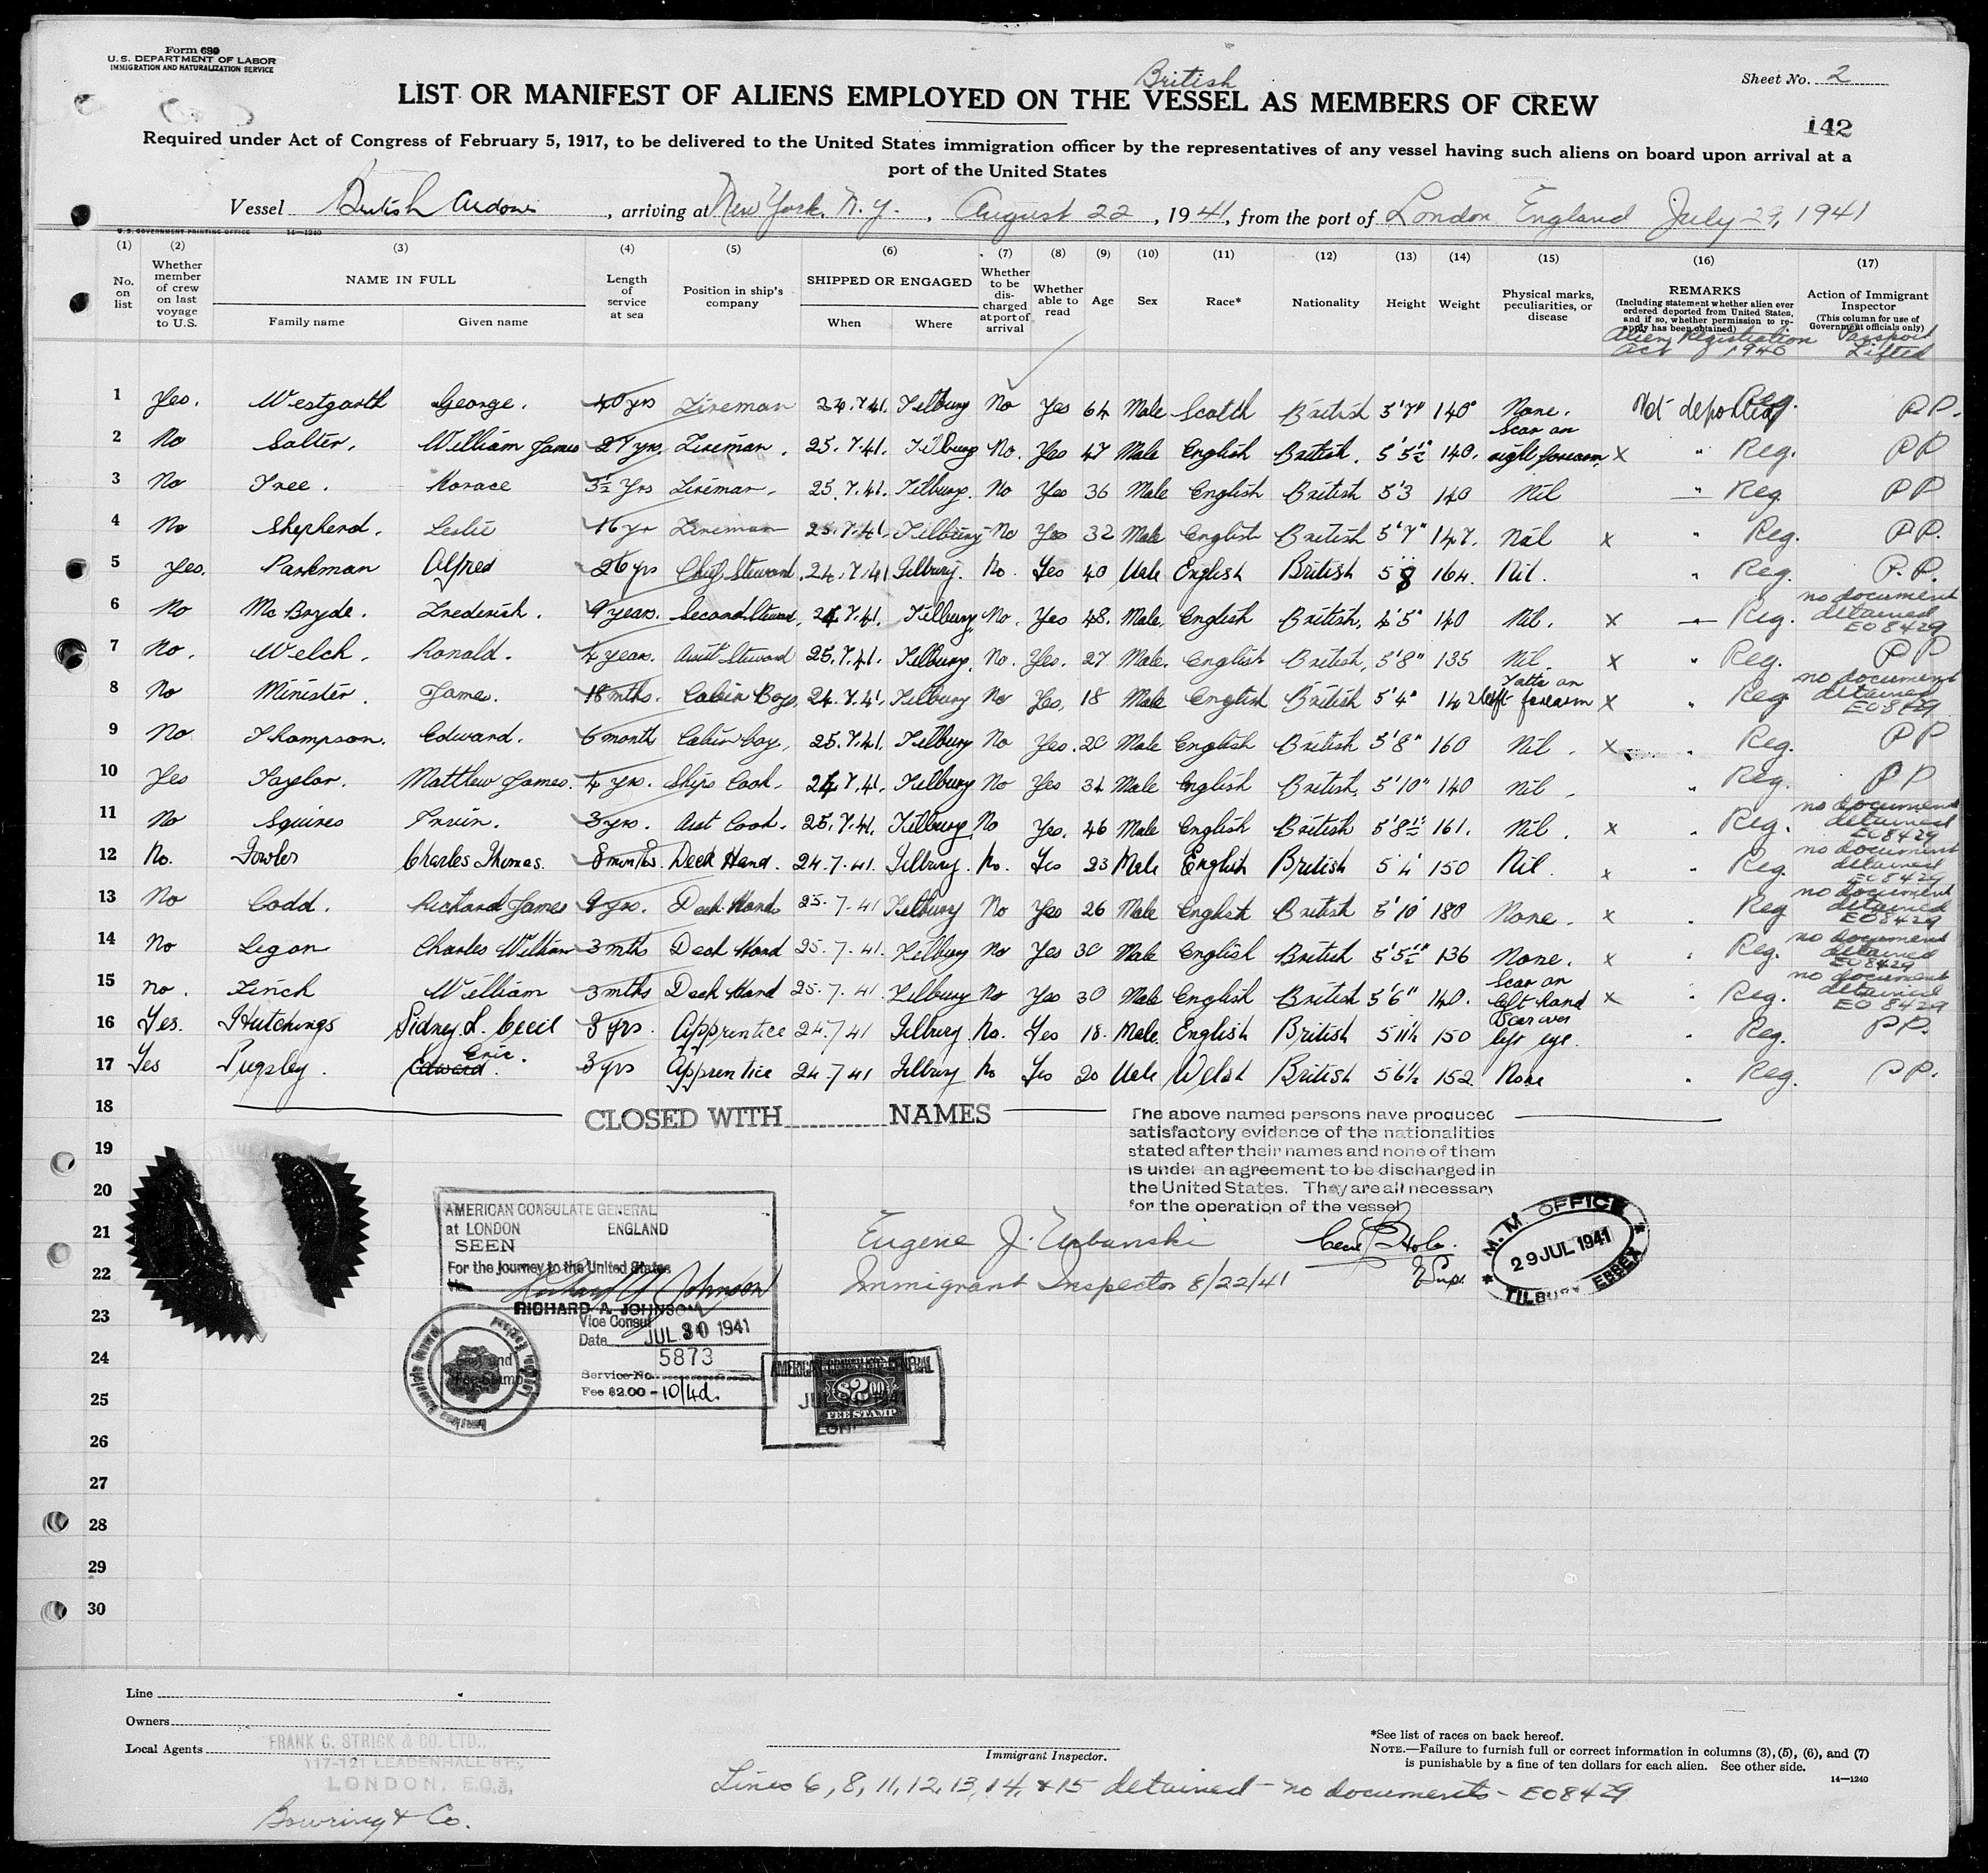 Form 680
U.S. DEPARTMENT OF LABOR
IMMIGRATION AND NATURALIZATION SERVICE
Sheet No. 2
British
LIST OR MANIFEST OF ALIENS EMPLOYED ON THE VESSEL AS MEMBERS OF CREW
142
Required under Act of Congress of February 5, 1917, to be delivered to the United States immigration officer by the representatives of any vessel having such aliens on board upon arrival at a
port of the United States
Vessel British , arriving at New York, N.Y. , August 22 , 1941, from the port of London England July 29, 1941
U.S. GOVERNMENT PRINTING OFFICE 14—1240
(1) (2) (3) (4) (5) (6) (7) (8) (9) (10) (11) (12) (13) (14) (15) (16) (17)
No. on list
Whether member of crew on last voyage to U.S.
NAME IN FULL
Family name Given name
Length of service at sea
Position in ship's company
SHIPPED OR ENGAGED
When Where
Whether to be discharged at port of arrival
Whether able to read
Age Sex Race* Nationality Height Weight
Physical marks, peculiarities, or disease
REMARKS
(Including statement whether alien ever ordered deported from United States, and if so, whether permission to reapply has been obtained)
Alien Registration Act 1940
Action of Immigrant Inspector
(This column for use of Government officials only)
Passport Lifted
1 Yes. Westgarth George. 40 yrs Fireman 24.7.41. Tilbury No Yes 64 Male Scotch British 5'7" 140 None. Not deported Reg. PP.
2 No Salter. William James 27 yrs. Fireman. 25.7.41. Tilbury No. Yes 47 Male English British. 5'5½" 140. Scar on right forearm. x " Reg. PP
3 No Tree. Horace 5½ yrs Fireman. 25.7.41. Tilbury. No Yes 36 Male English British 5'3 140 Nil — Reg PP
4 No Shepherd. Leslie 16 yr Fireman 25.7.41. Tilbury No Yes 32 Male English British 5'7" 147. Nil x " Reg. PP.
5 Yes. Parkman Alfred 26 yrs Chief Steward 24.7.41 Tilbury. No. Yes 40 Male English British 5 8 164. Nil. " Reg. P.P.
6 No McBryde. Frederick. 9 years. Second Steward. 24.7.41. Tilbury No. Yes 48. Male. English British. 4'5" 140 Nil. x " Reg. no document detained EO 8429
7 No. Welch. Ronald. 4 years. Asst Steward 25.7.41. Tilbury. No. Yes. 27 Male. English British. 5'8" 135 Nil. x " Reg. PP
8 No Minister. James. 18 mths. Cabin Boy. 24.7.41. Tilbury No Yes. 18 Male English British 5'4" 142 Tatto on left forearm x " Reg. no document detained EO 8429
9 No Thompson. Edward. 6 month Cabin boy. 25.7.41. Tilbury No Yes. 20 Male English British 5'8" 160 Nil. x " Reg. PP
10 Yes Taylor. Matthew James. 4 yrs. Ships Cook. 24.7.41. Tilbury No Yes 34 Male English British. 5'10" 140 Nil. " Reg. PP
11 No Squires 3 yrs. Asst Cook. 25.7.41. Tilbury. No Yes. 46 Male English British 5'8½" 161. Nil. x " Reg. no document detained EO 8429
12 No. Fowler Charles Thomas. 8 months. Deck Hand. 24.7.41. Tilbury. No. Yes 23 Male English British 5 4 150 Nil. x " Reg. no document detained EO 8429
13 No Codd. Richard James 9 yrs. Deck Hand 25.7.41 Tilbury No Yes 26 Male English British 5'10 180 None. x " Reg no document detained EO 8429
14 No Legon Charles William 3 mths Deck Hand 25.7.41. Tilbury No Yes 30 Male English British 5'5½" 136 None. x " Reg. no document detained EO 8429
15 no. Finch William 3 mths Deck Hand 25.7.41. Tilbury No Yes 30 Male English British 5'6" 140. Scar on left hand x " Reg. no document detained EO 8429
16 Yes. Hutchings Sidney L. Cecil 3 yrs. Apprentice 24.7.41 Tilbury. No. Yes 18. Male. English British 5 11½ 150 Scar over left eye. " Reg. PP.
17 Yes Pugsley. Edward. Eric. 3 yrs Apprentice 24.7.41 Tilbury No Yes 20 Male Welsh British 5 6½ 152 None " Reg. PP.
18 CLOSED WITH NAMES
The above named persons have produced
satisfactory evidence of the nationalities
stated after their names and none of them
is under an agreement to be discharged in
the United States. They are all necessary
for the operation of the vessel
19
20
21
22
23
24
25
26
27
28
29
30
AMERICAN CONSULATE GENERAL
at LONDON ENGLAND
SEEN
For the journey to the United States
Richard A Johnson
RICHARD A. JOHNSON
Vice Consul
Date JUL 30 1941
5873
Service No.
Fee $2.00 - 10/4d.
AMERICAN CONSULATE GENERAL
$2.00
FEE STAMP
Eugene J. Urbanski
Immigrant Inspector 8/22/41
M. M. OFFICE
29 JUL 1941
TILBURY ESSEX
Line
Owners
Local Agents
FRANK C. STRICK & CO. LTD.,
117-121 LEADENHALL ST.,
LONDON, E.C.3.
Bowring & Co.
Immigrant Inspector.
Lines 6, 8, 11, 12, 13, 14, & 15 detained - no documents - EO 8429
*See list of races on back hereof.
NOTE.—Failure to furnish full or correct information in columns (3), (5), (6), and (7)
is punishable by a fine of ten dollars for each alien. See other side.
14—1240